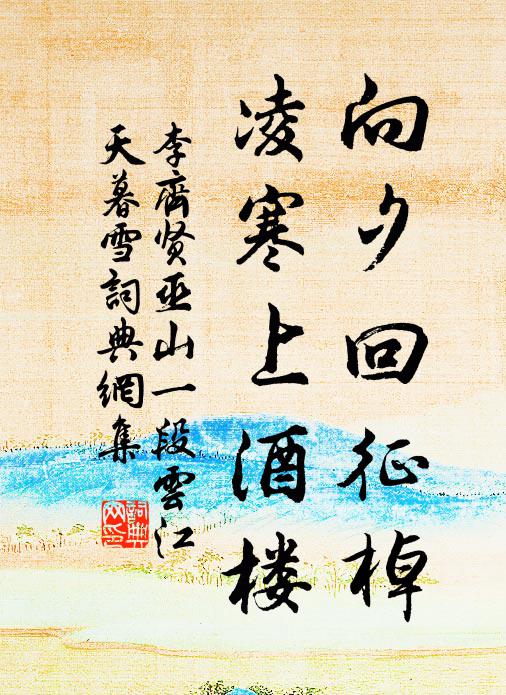 向夕回征棹
凌寒上酒楼
李齊贤巫山一段雲江
天暮雪詞典網集
詞典
网印